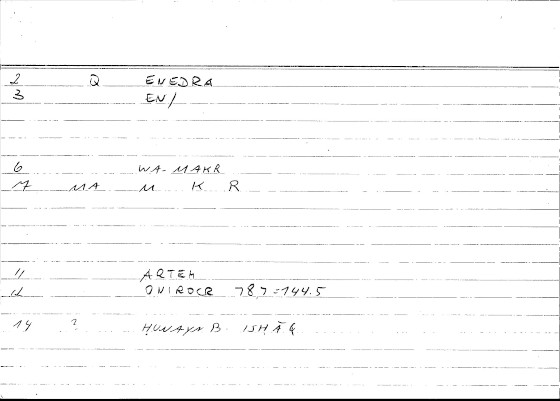 2 Q ENEDRA
3 EN/
6 WA-MAKR
7 MA M K R
11 ARTEM
12 ONIROCR 78,7=144.5
14 ? ḤUNAYN B. ISḤĀQ